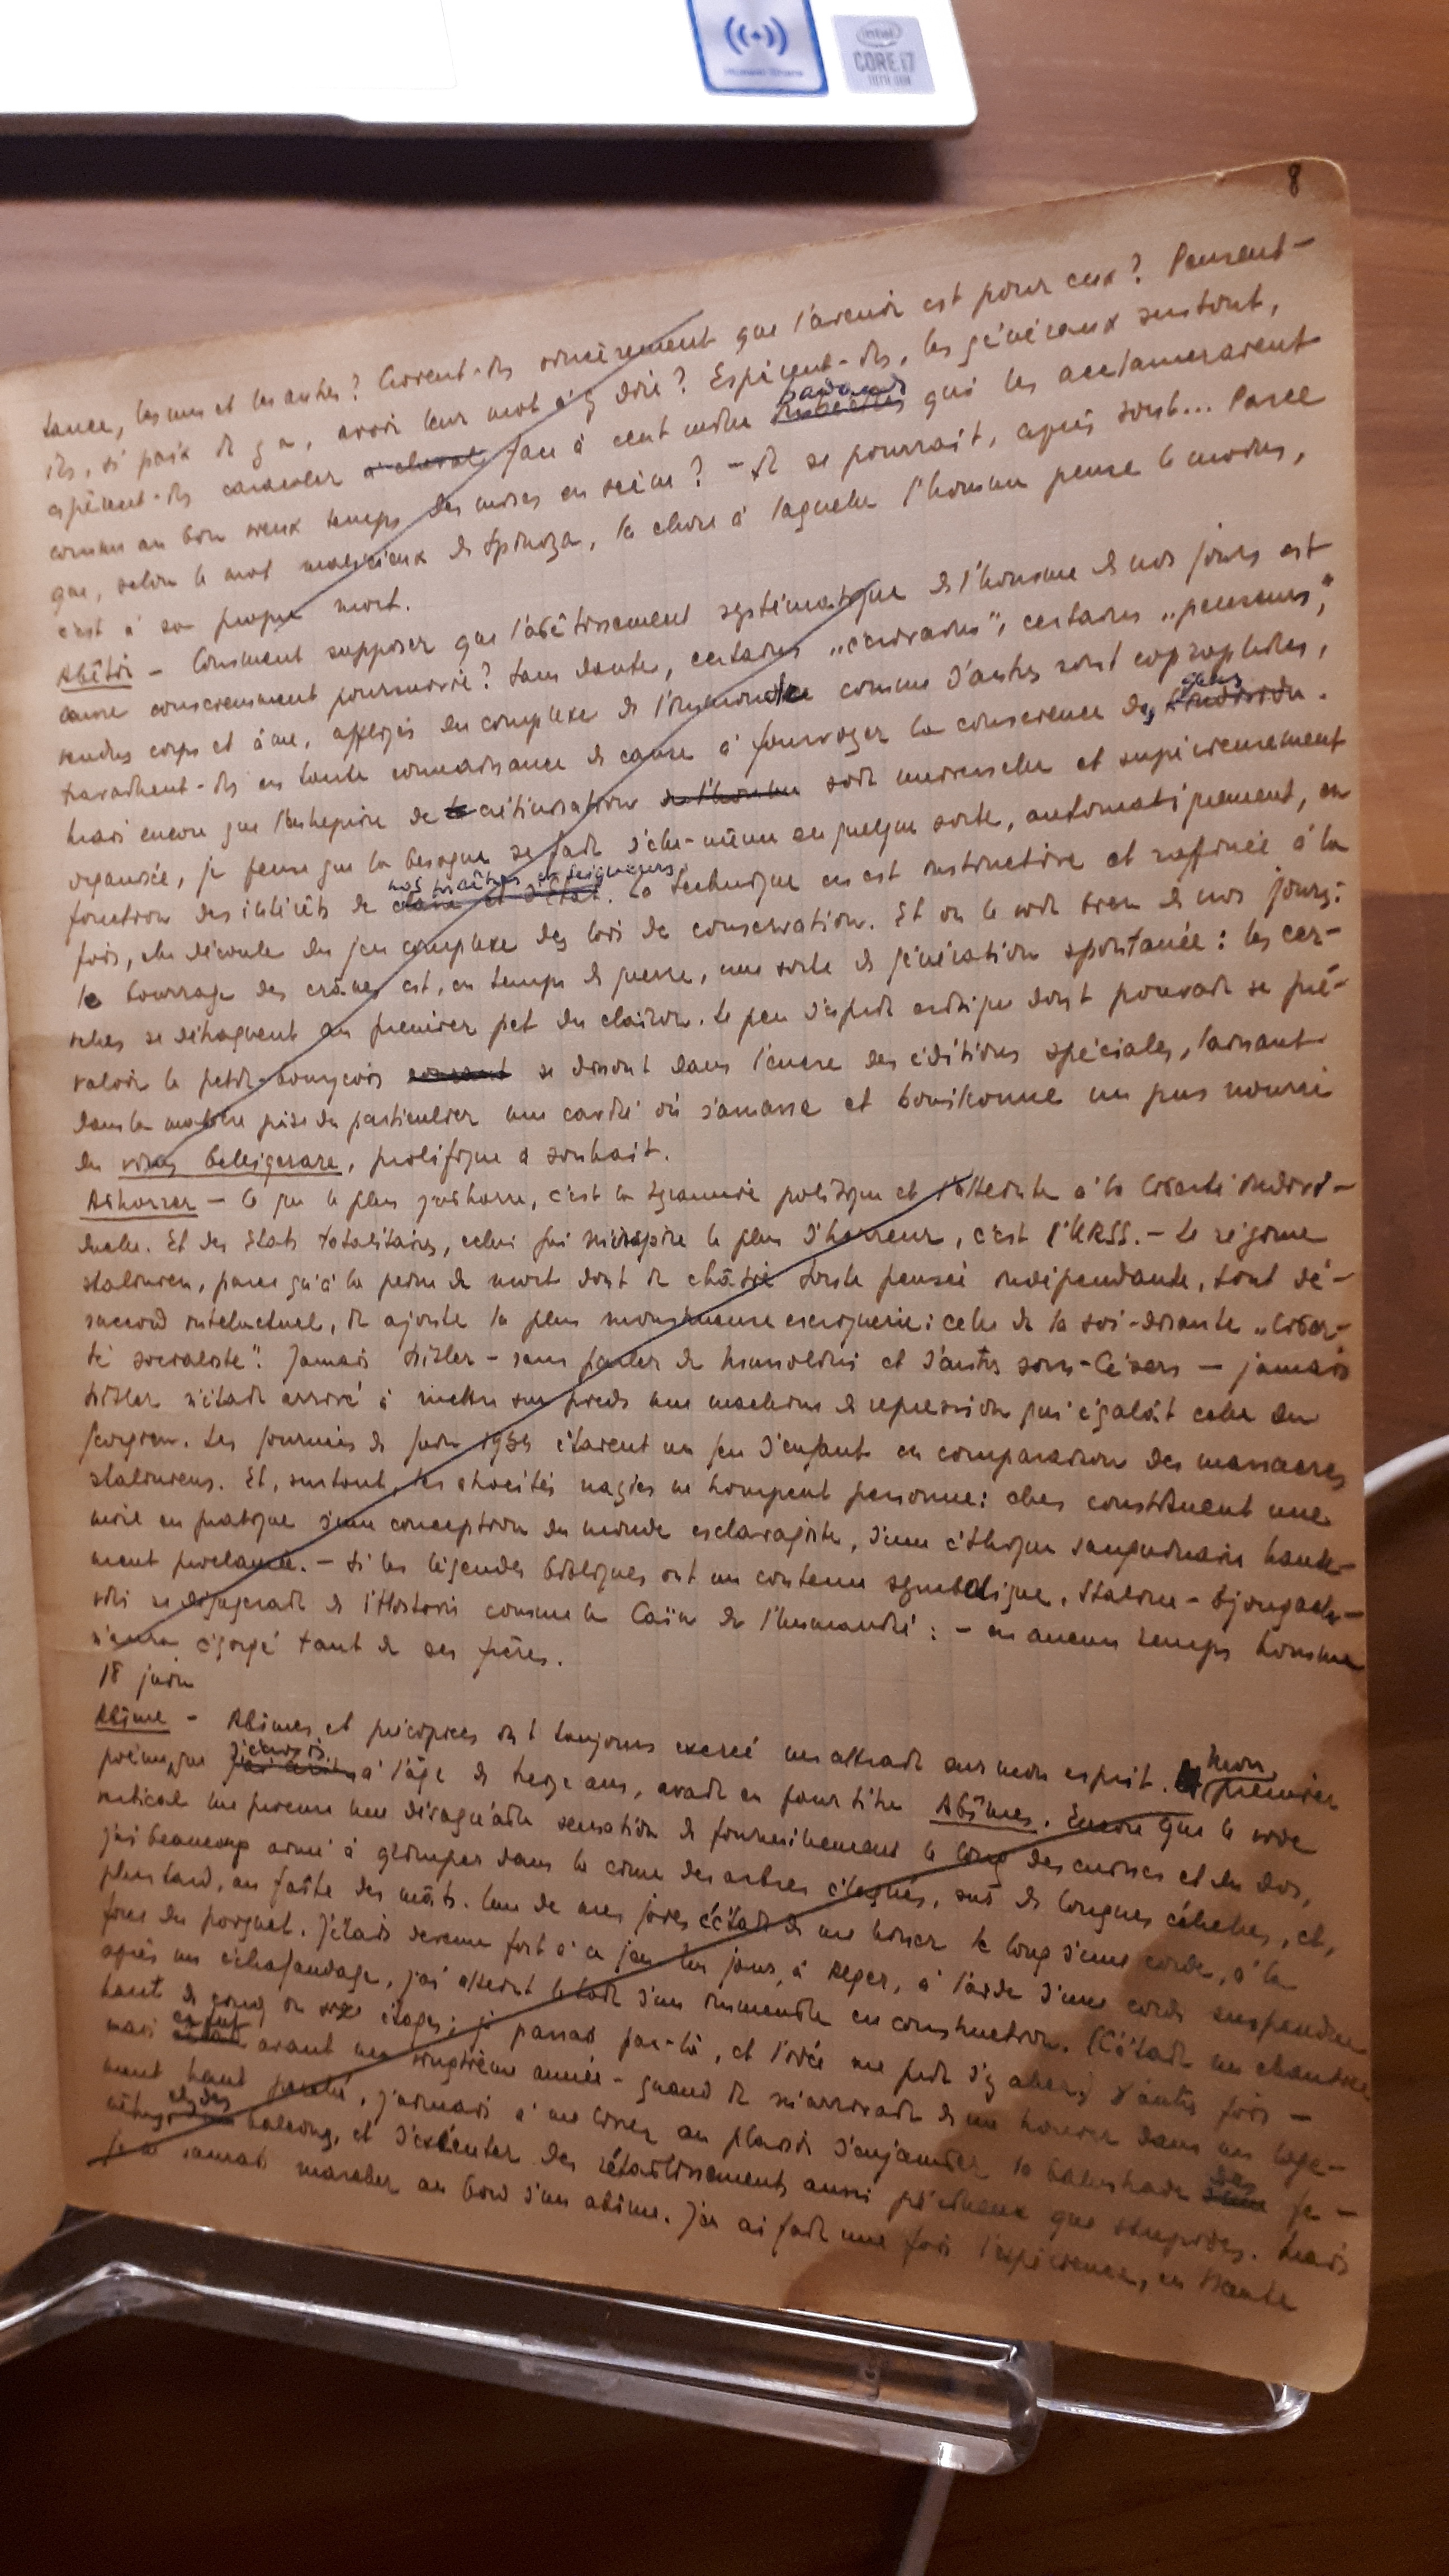 Huawei Share
intel
CORE i7
10TH GEN
8
tance, les uns et les autres? Croient-ils sincèrement que l'avenir est pour eux? Pensent-
ils, si paix il y a, avoir leur mot à y dire? Espèrent-ils, les généraux surtout,
espèrent-ils caracoler à cheval face à cent mille badauds imbéciles qui les acclameraient
comme au bon vieux temps des mises en scène? - Il se pourrait, après tout... Parce
que, selon le mot malicieux de Spinoza, la chose à laquelle l'homme pense le moins,
c'est à sa propre mort.
Abêtir - Comment supposer que l'abêtissement systématique de l'homme de nos jours est
œuvre consciemment poursuivie? Sans doute, certains „écrivains", certains „penseurs",
vendus corps et âme, affligés du complexe de l'immonde comme d'autres sont coprophiles,
travaillent-ils en toute connaissance de cause à fourvoyer la conscience des gens l'individu.
Mais encore que l'entreprise de crétinisation de l'homme soit universelle et supérieurement
organisée, je pense que la besogne se fait d'elle-même en quelque sorte, automatiquement, en
fonction des intérêts de nos maîtres et seigneurs classe et d'état. La technique en est instinctive et raffinée à la
fois, elle découle du jeu complexe des lois de conservation. Et on le voit bien de nos jours:
le bourrage des crânes est, en temps de guerre, une sorte de génération spontanée: les cer-
velles se détraquent au premier pet du clairon. Le peu d'esprit critique dont pouvait se pré-
valoir le petit-bourgeois se dissout dans l'encre des éditions spéciales, laissant
dans la matière grise du particulier une cavité où s'amasse et bouillonne un pus nourri
du virus belligerare, prolifique à souhait.
Abhorrer - Ce que le plus j'abhorre, c'est la tyrannie politique et l'atteinte à la liberté indivi-
duelle. Et des états totalitaires, celui qui m'inspire le plus d'horreur, c'est l'URSS. - Le régime
stalinien, parce qu'à la peine de mort dont il châtie toute pensée indépendante, tout dé-
saccord intellectuel, il ajoute la plus monstrueuse escroquerie: celle de la soi-disante „liber-
té socialiste". Jamais Hitler - sans parler de Mussolini et d'autres sous-Césars - jamais
Hitler n'était arrivé à mettre sur pieds une machine de répression qui égalât celle du
Géorgien. Les journées de juin 1934 étaient un jeu d'enfant en comparaison des massacres
staliniens. Et, surtout, les atrocités nazies ne trompent personne: elles constituent une
mise en pratique d'une conception du monde esclavagiste, d'une éthique sanguinaire haute-
ment proclamée. - Si les légendes bibliques ont un contenu symbolique, Staline - Djougach-
vili se dégagerait de l'Histoire comme le Caïn de l'humanité: - en aucun temps homme
n'aura égorgé tant de ses frères.
18 juin
Abîme - Abîmes et précipices ont toujours exercé un attrait sur mon esprit. Mon premier
poème, que j'écrivis j'ai écrit à l'âge de treize ans, avait eu pour titre Abîmes. Encore que le vide
vertical me procure une désagréable sensation de fourmillement le long des cuisses et du dos,
j'ai beaucoup aimé à grimper dans la cime des arbres élagués, sur de longues échelles, et,
plus tard, au faîte des mâts. Une de mes joies c'était de me hisser le long d'une corde, à la
force du poignet. J'étais devenu fort à ce jeu. Un jour, à Alger, à l'aide d'une corde suspendue
après un échafaudage, j'ai atteint le toit d'un immeuble en construction. (C'était un chantier
haut de cinq ou six étages; je passais par-là, et l'idée me prit d'y aller.) D'autres fois -
mais avant ma vingtième année - quand il m'arrivait de me trouver dans un loge-
ment haut perché, j'aimais à me livrer au plaisir d'enjamber la balustrade des fe-
nêtres, balcons, et d'exécuter des rétablissements aussi périlleux que stupides. Mais
je ne saurais marcher au bord d'un abîme. J'en ai fait une fois l'expérience, en Haute